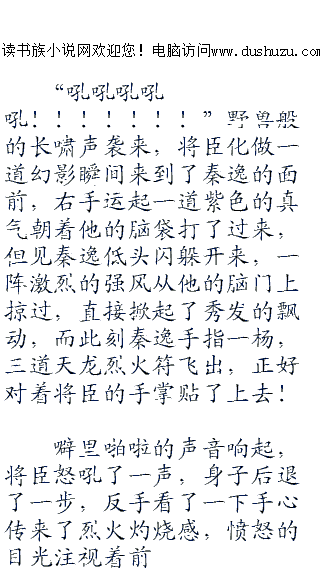 读书族小说网欢迎您！电脑访问www.dushuzu.com
“吼吼吼吼
吼！！！！！！！”野兽般
的长啸声袭来，将臣化做一
道幻影瞬间来到了秦逸的面
前，右手运起一道紫色的真
气朝着他的脑袋打了过来，
但见秦逸低头闪躲开来，一
阵激烈的强风从他的脑门上
掠过，直接掀起了秀发的飘
动，而此刻秦逸手指一杨，
三道天龙烈火符飞出，正好
对着将臣的手掌贴了上去！
噼里啪啦的声音响起，
将臣怒吼了一声，身子后退
了一步，反手看了一下手心
传来了烈火灼烧感，愤怒的
目光注视着前